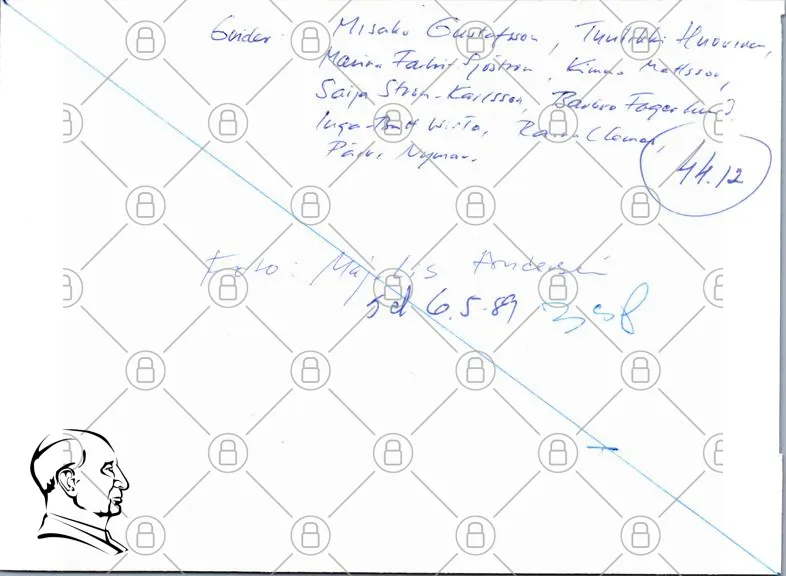 Guider: Misako Gustafsson, Tuulikki Huovinen,
Marina Fabri-Sjöström, Kimmo Mattsson,
Saija Ström-Karlsson, Barbro Fagerlund,
Inga-Britt Wirta,
Päivi Nyman.
44.12
Foto: Maj-Lis
6.5.89